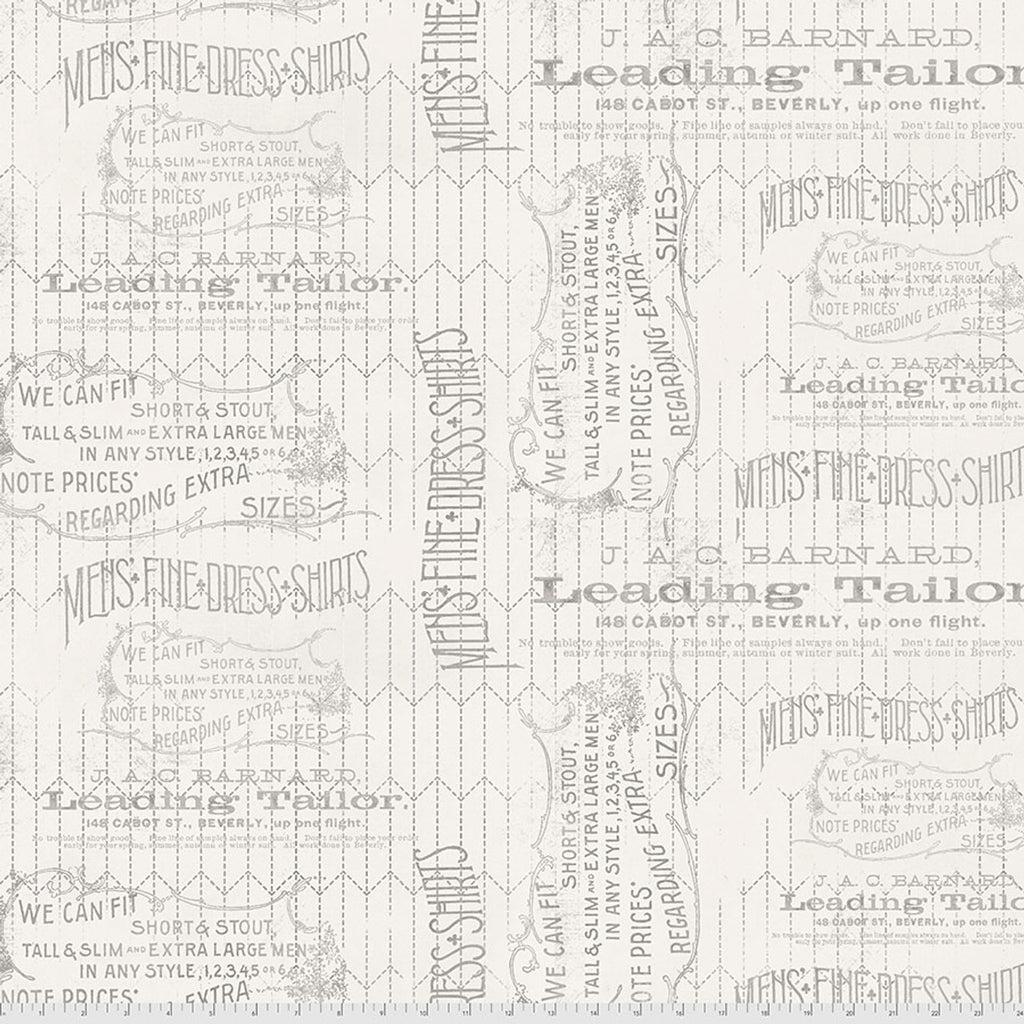 REGARDING
MENS' FINE DRESS SHIRTS
WE CAN FIT
SHORT & STOUT,
TALL & SLIM AND EXTRA LARGE MEN
IN ANY STYLE, 1,2,3,4,5 OR 6.
NOTE PRICES'
REGARDING EXTRA
SIZES
J. A. C. BARNARD,
Leading Tailor.
148 CABOT ST., BEVERLY, up one flight.
No trouble to show goods. Fine line of samples always on hand. Don't fail to place your order
early for your spring, summer, autumn or winter suit. All work done in Beverly.
WE CAN FIT
SHORT & STOUT,
TALL & SLIM AND EXTRA LARGE MEN
IN ANY STYLE, 1,2,3,4,5 OR 6.
NOTE PRICES'
REGARDING EXTRA
SIZES
MENS' FINE DRESS SHIRTS
WE CAN FIT
SHORT & STOUT,
TALL & SLIM AND EXTRA LARGE MEN
IN ANY STYLE, 1,2,3,4,5 OR 6.
NOTE PRICES'
REGARDING EXTRA
SIZES
J. A. C. BARNARD,
Leading Tailor.
148 CABOT ST., BEVERLY, up one flight.
No trouble to show goods. Fine line of samples always on hand. Don't fail to place your order
early for your spring, summer, autumn or winter suit. All work done in Beverly.
WE CAN FIT
SHORT & STOUT,
TALL & SLIM AND EXTRA LARGE MEN
IN ANY STYLE, 1,2,3,4,5 OR 6.
NOTE PRICES'
EXTRA
MENS' FINE
MENS' FINE DRESS SHIRTS
DRESS SHIRTS
J. A. C. BARNARD,
Leading Tailor
148 CABOT ST., BEVERLY, up one flight.
No trouble to show goods. Fine line of samples always on hand. Don't fail to place you
early for your spring, summer, autumn or winter suit. All work done in Beverly.
WE CAN FIT
SHORT & STOUT,
TALL & SLIM AND EXTRA LARGE MEN
IN ANY STYLE, 1,2,3,4,5 OR 6.
NOTE PRICES'
REGARDING EXTRA
SIZES
MENS' FINE DRESS SHIRTS
WE CAN FIT
SHORT & STOUT,
TALL & SLIM AND EXTRA LARGE MEN
IN ANY STYLE, 1,2,3,4,5 OR 6
NOTE PRICES'
REGARDING EXTRA
SIZES
J. A. C. BARNARD,
Leading Tailo
148 CABOT ST., BEVERLY, up one flight.
MENS' FINE DRESS SHIRT
J. A. C. BARNARD,
Leading Tailor
148 CABOT ST., BEVERLY, up one flight.
No trouble to show goods. Fine line of samples always on hand. Don't fail to place you
early for your spring, summer, autumn or winter suit. All work done in Beverly.
WE CAN FIT
SHORT & STOUT,
TALL & SLIM AND EXTRA LARGE MEN
IN ANY STYLE, 1,2,3,4,5 OR 6.
NOTE PRICES'
REGARDING EXTRA
SIZES
MENS' FINE DRESS SHIRTS
WE CAN FIT
SHORT & STOUT,
TALL & SLIM AND EXTRA LARGE MEN
IN ANY STYLE, 1,2,3,4,5 OR 6
NOTE PRICES'
REGARDING EXTRA
SIZES
J. A. C. BARNARD,
Leading Tailo
148 CABOT ST., BEVERLY, up one flight.
MENS' FINE DRESS SHIRT
1 2 3 4 5 6 7 8 9 10 11 12 13 14 15 16 17 18 19 20 21 22 23 24